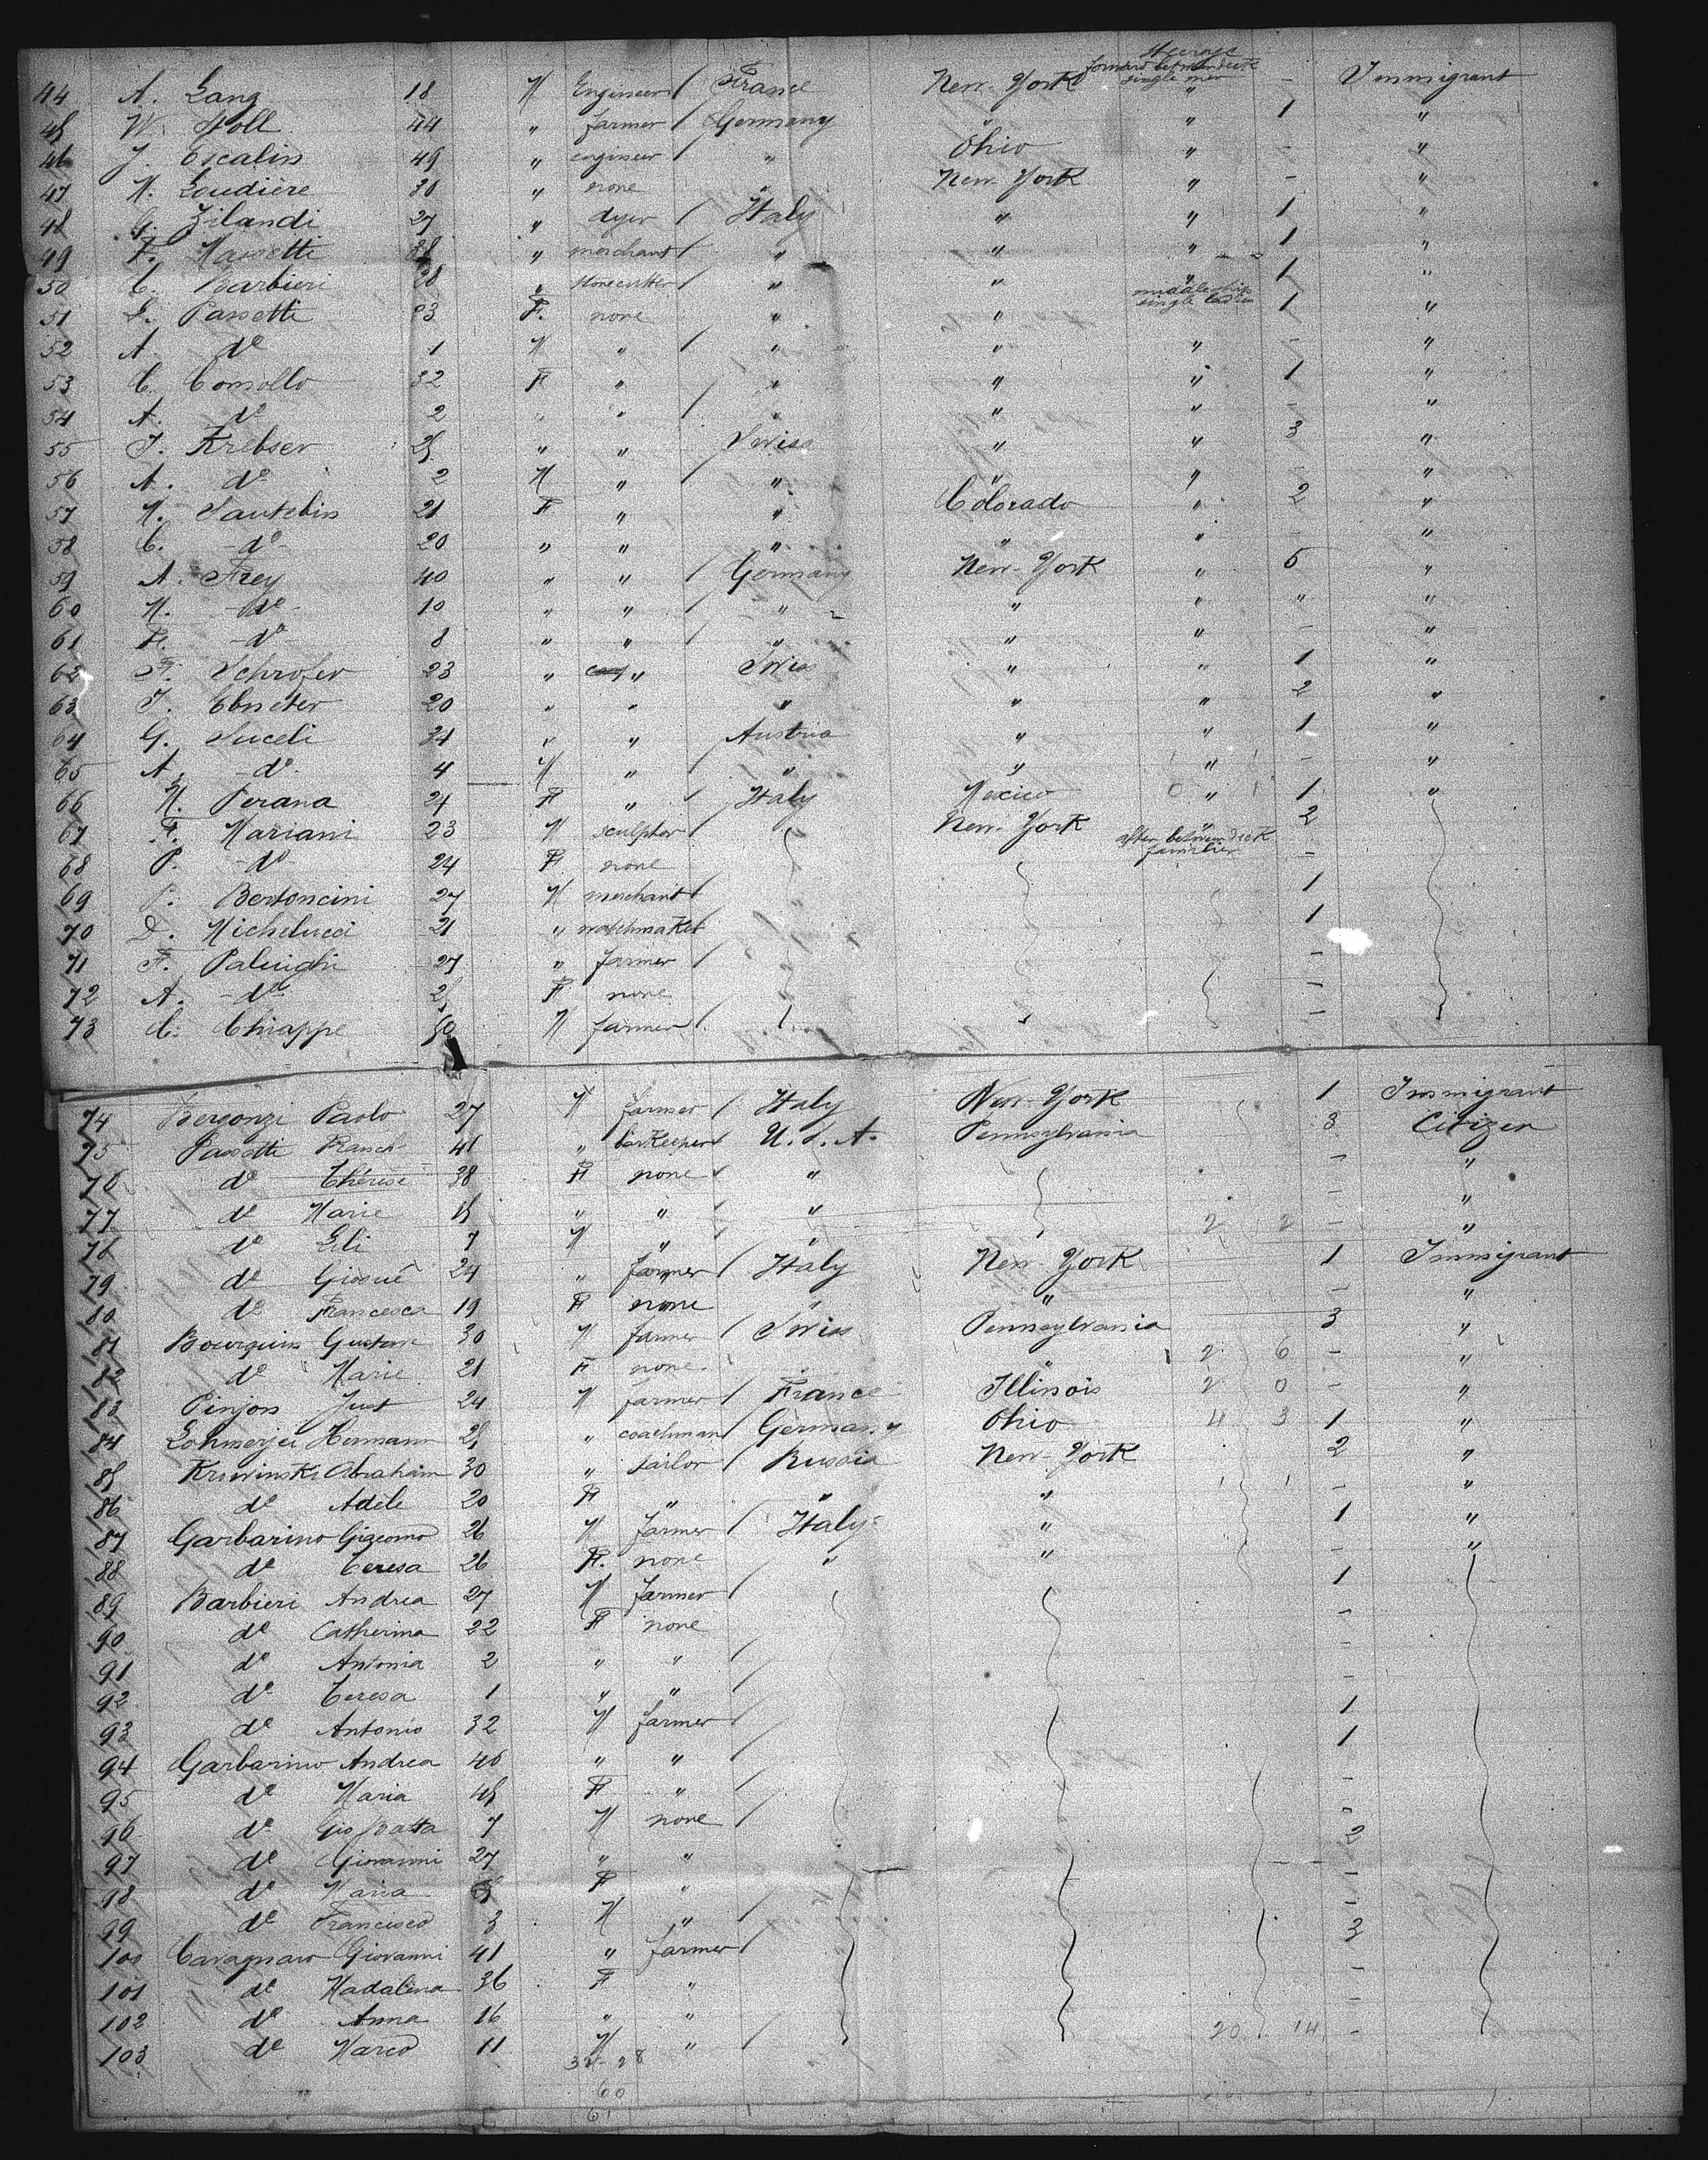 Steerage
forward between deck
44 A. Lang 18 M Engineer / France New-York single men " - Immigrant
45 W. Stoll 44 " farmer / Germany " " 1 "
46 J. Escalin 49 " engineer / " Ohio " - "
47 M. Loudière 30 " none " New York " - "
48 G. Zilandi 27 " dyer / Italy " " 1 "
49 F. Massetti " merchant / " " " 1 "
50 C. Barbieri 28 " stonecutter " " " 1 "
middleship
51 L. Passetti 23 F. none " " single ladies 1 "
52 A. do 1 M " / " " " - "
53 C. Comollo 32 F " " " " 1 "
54 A. do 2 " " / " " " - "
55 J. Krebser 25 " " Swiss " " 3 "
56 A. do 2 M " " " " - "
57 M. Sautebin 21 F " " Colorado " 2 "
58 C. - do - 20 " " " " " - "
59 A. Frey 40 " " / Germany New-York " 5 "
60 M. - do - 10 " " / " " " " "
61 F. - do 8 " " / " " " - "
62 F. Schrofer 23 " " Swiss " " 1 "
63 J. Ebneter 20 " " " " " 2 "
64 G. Suceli 34 " " / Austria " " 1 "
65 A. - do - 4 M " / " " " - "
66 M. Perana 24 F " / Italy Mexico " 1 "
67 F. Mariani 23 M sculptor / New-York " 2
after between deck
68 P. - do - 24 F none families -
69 P. Bertoncini 27 M merchant / 1
70 D. Michelucci 21 " watchmaker 1
71 F. Palinghi 27 " farmer / -
72 A. - do - 25 F none -
73 C. Chiappe 50 M farmer / -
74 Bergonzi Paolo 27 M farmer / Italy New-York 1 Immigrant
75 Passetti 41 " barkeeper U.S.A. Pennsylvania 3 Citizen
76 do Thérèse 38 F none " - "
77 do Marie 15 " " / " - "
78 do Eli 7 M " / " 2 2 - "
79 do Giosuè 24 " farmer / Italy New-York 1 Immigrant
80 do Francesca 19 F none " " - "
81 Bourquin Gustave 30 M farmer / Swiss Pennsylvania 3 "
82 do Marie 21 F none " 2 6 - "
83 Pinjon Just 24 M farmer / France Illinois 2 0 - "
84 Hermann 25 " coachman / Germany Ohio 4 3 1 "
85 Krivinski Abraham 30 " tailor / Russia New-York 2 "
86 do Adèle 20 F " " " 1 1 - "
87 Garbarino Giacomo 26 M farmer / Italy " 1 "
88 do Teresa 26 F. none " " - "
89 Barbieri Andrea 27 M farmer / 1
90 do Catherina 22 F none -
91 do Antonia 2 " " / -
92 do Teresa 1 " " / -
93 do Antonio 32 M farmer / 1
94 Garbarino Andrea 46 " " / 1
95 do Maria 45 F " / -
96 do Gio Batta 7 M none / -
97 do Giovanni 27 " " 2
98 do Maria F " -
99 do Francisco 3 M " / -
100 Cavagnaro Giovanni 41 " farmer / 3
101 do Madalena 36 F " -
102 do Anna 16 " " -
103 do Marco 11 M " / 20 14 -
32-28
60
61